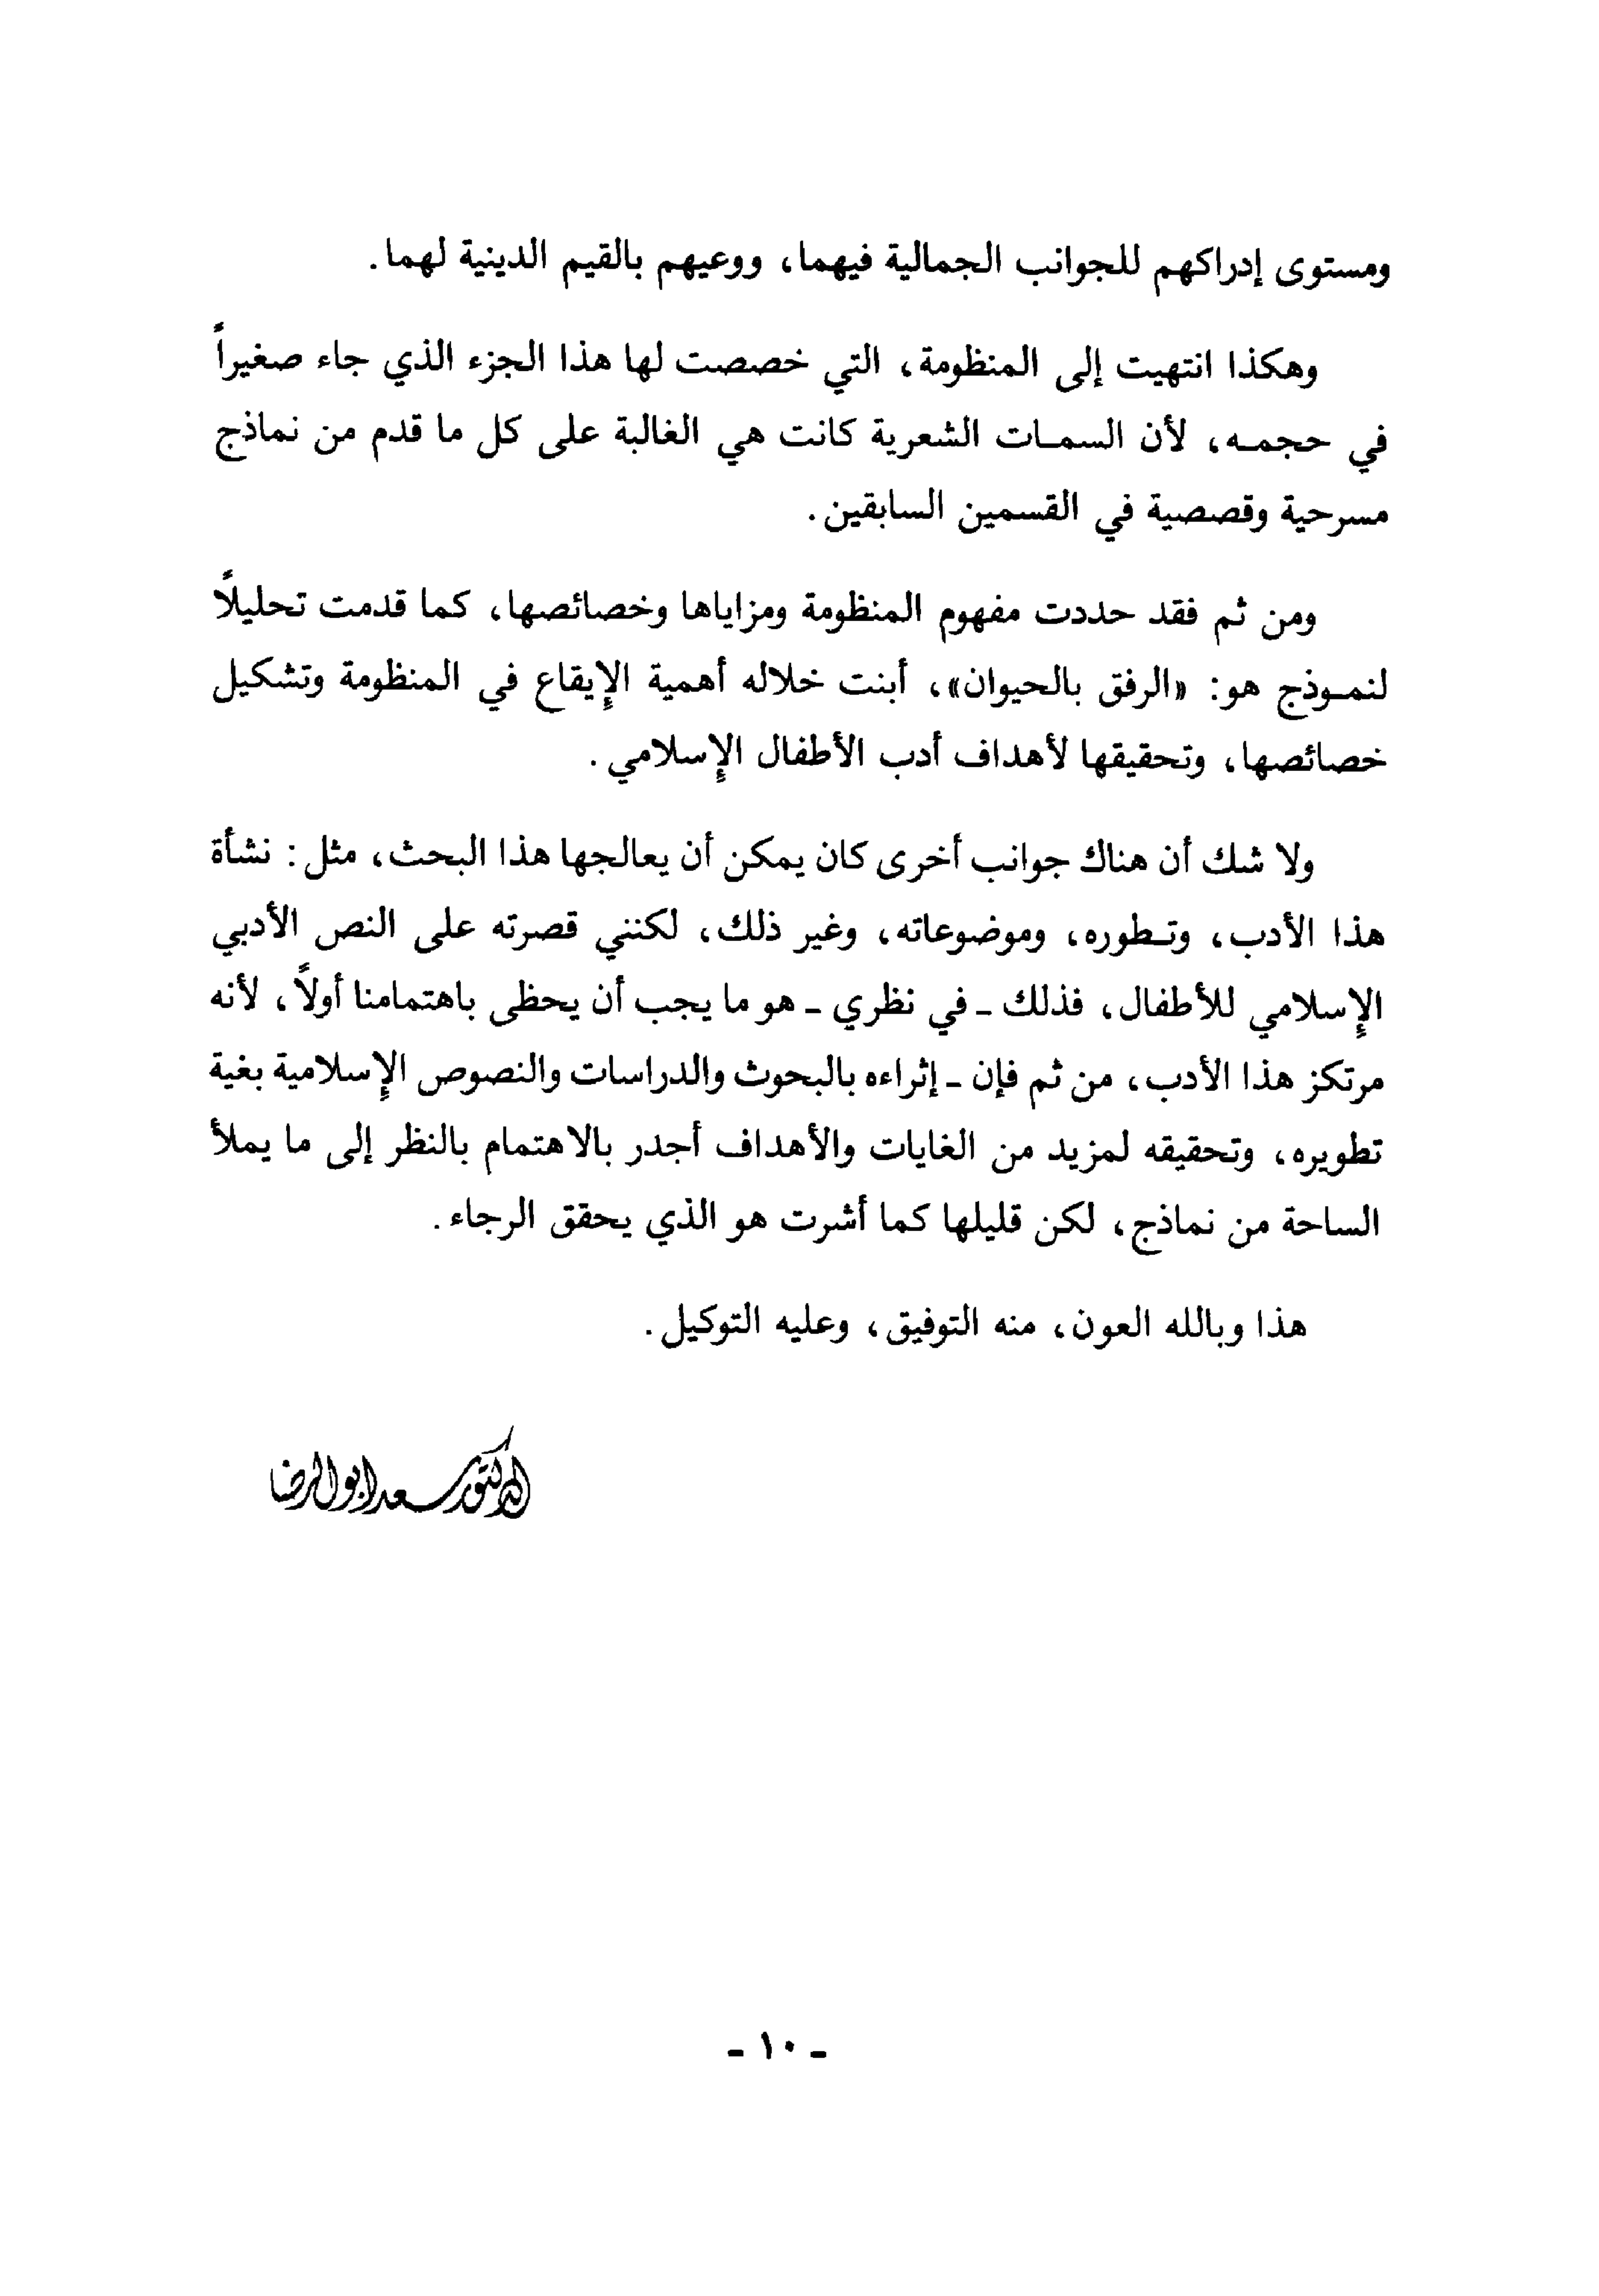 ومستوى إدراكهم للجوانب الجمالية فيهما، ووعيهم بالقيم الدينية لهما.
وهكذا انتهيت إلى المنظومة، التي خصصت لها هذا الجزء الذي جاء صغيراً
في حجمـه، لأن السمـات الشعرية كانت هي الغالبة على كل ما قدم من نماذج
مسرحية وقصصية في القسمين السابقين.
ومن ثم فقد حددت مفهوم المنظومة ومزاياها وخصائصها، كما قدمت تحليلاً
لنمـوذج هو: «الرفق بالحيوان»، أبنت خلاله أهمية الإيقاع في المنظومة وتشكيل
خصائصها، وتحقيقها لأهداف أدب الأطفال الإسلامي.
ولا شك أن هناك جوانب أخرى كان يمكن أن يعالجها هذا البحث، مثل: نشأة
هذا الأدب، وتـطوره، وموضوعاته، وغير ذلك، لكنني قصرته على النص الأدبي
الإسلامي للأطفال، فذلك ـ في نظري ـ هو ما يجب أن يحظى باهتمامنا أولاً، لأنه
مرتكز هذا الأدب، من ثم فإن ـ إثراءه بالبحوث والدراسات والنصوص الإسلامية بغية
تطويره، وتحقيقه لمزيد من الغايات والأهداف أجدر بالاهتمام بالنظر إلى ما يملأ
الساحة من نماذج، لكن قليلها كما أشرت هو الذي يحقق الرجاء.
هذا وبالله العون، منه التوفيق، وعليه التوكيل.
الدكتور سعد ابو الرضا
ـ ١٠ ـ